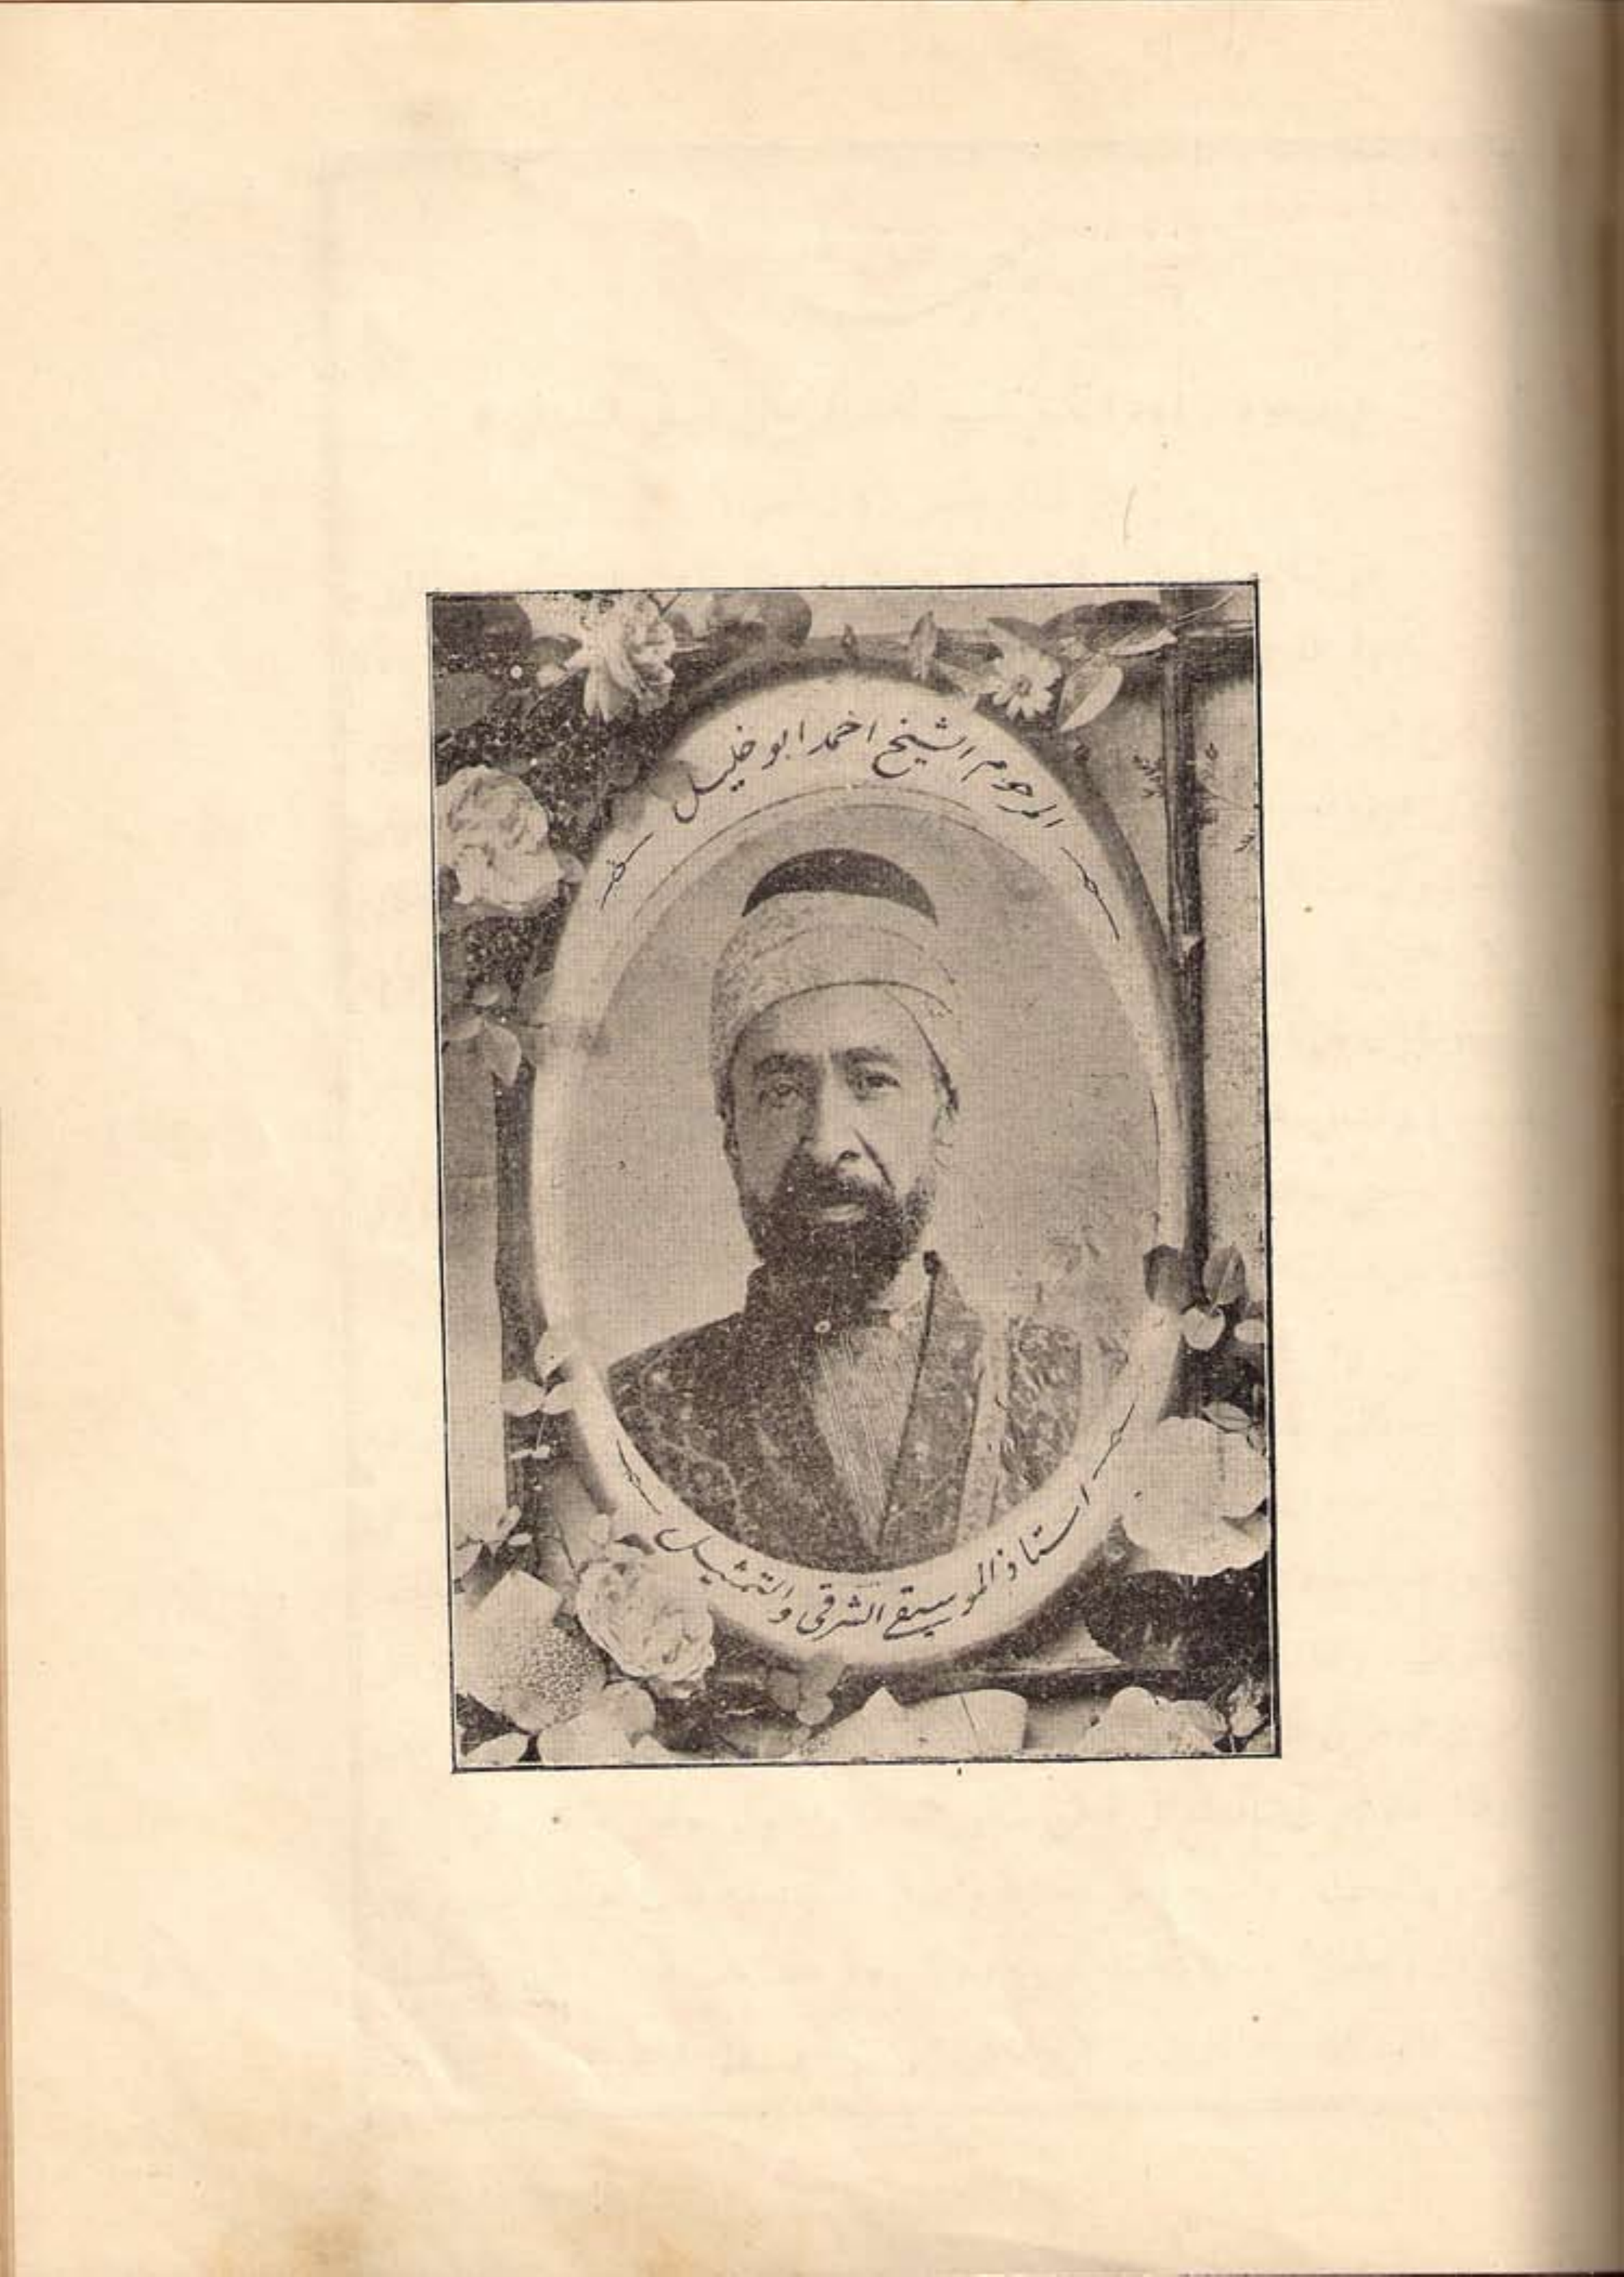 المرحوم الشيخ احمد ابو خليل
استاذ الموسيقى الشرقى والتمثيل